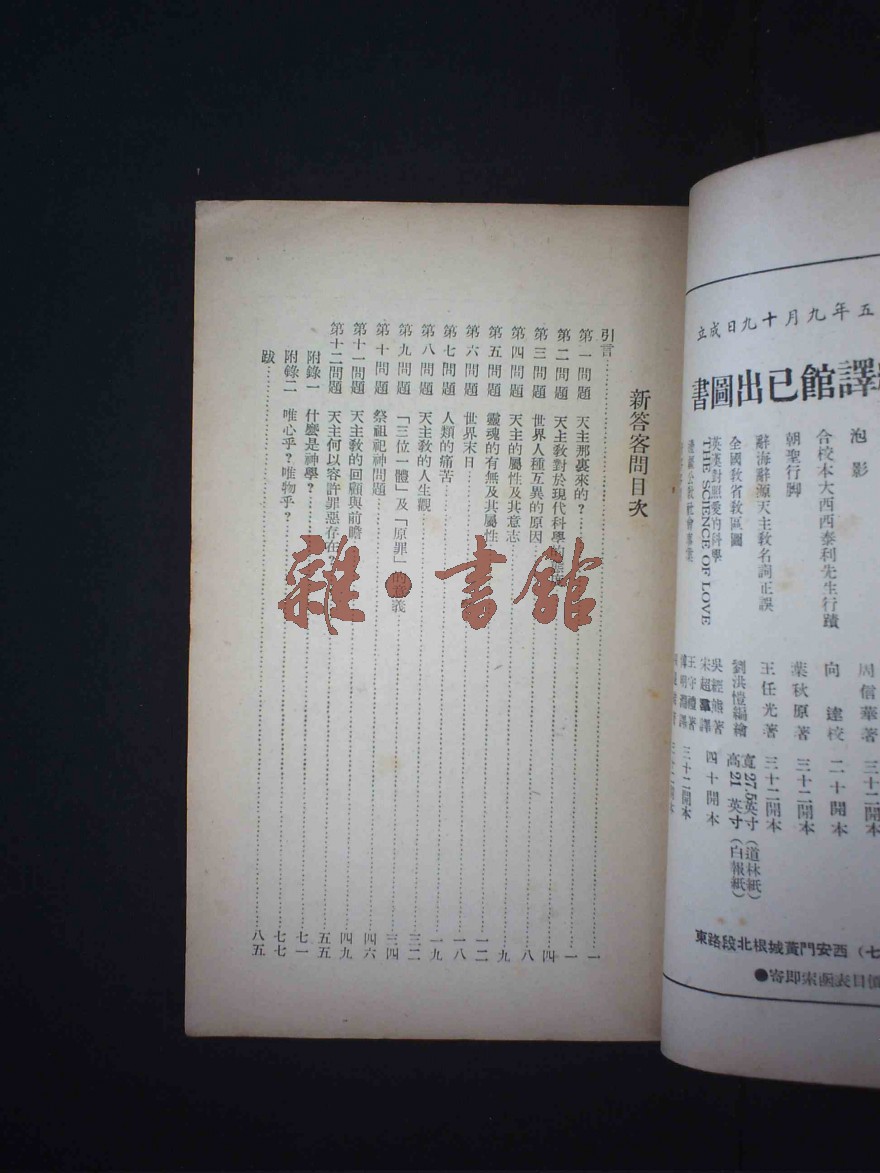 立成日九十月九年五
書圖出已館譯
周信華著 三十二開本
泡影 向達校 二十開本
合校本大西西泰利先生行蹟
朝聖行脚 葉秋原著 三十二開本
辭海辭源天主教名詞正誤 王任光著 三十二開本
全國教省教區圖 劉洪愷編繪 寬27.5英寸 高21英寸 (道林紙) (白報紙)
英漢對照愛的科學 THE SCIENCE OF LOVE 吳經熊著 宋超羣譯 四十開本
王守禮著 傅明淵譯 三十二開本
東路段北根城黃門安西 (七
●寄即索函表目價
新答客問目次
引言 一
第一問題 天主那裏來的？ 一
第二問題 天主教對於現代科學的 四
第三問題 世界人種互異的原因 八
第四問題 天主的屬性及其意志 九
第五問題 靈魂的有無及其屬性 一二
第六問題 世界末日 一八
第七問題 人類的痛苦 一九
第八問題 天主教的人生觀 三二
第九問題 「三位一體」及「原罪」的意義 三四
第十問題 祭祖祀神問題 四六
第十一問題 天主教的回顧與前瞻 四九
第十二問題 天主何以容許罪惡存在？ 五五
附錄一 什麼是神學？ 七一
附錄二 唯心乎？唯物乎？ 七七
跋 八五
雜·書館